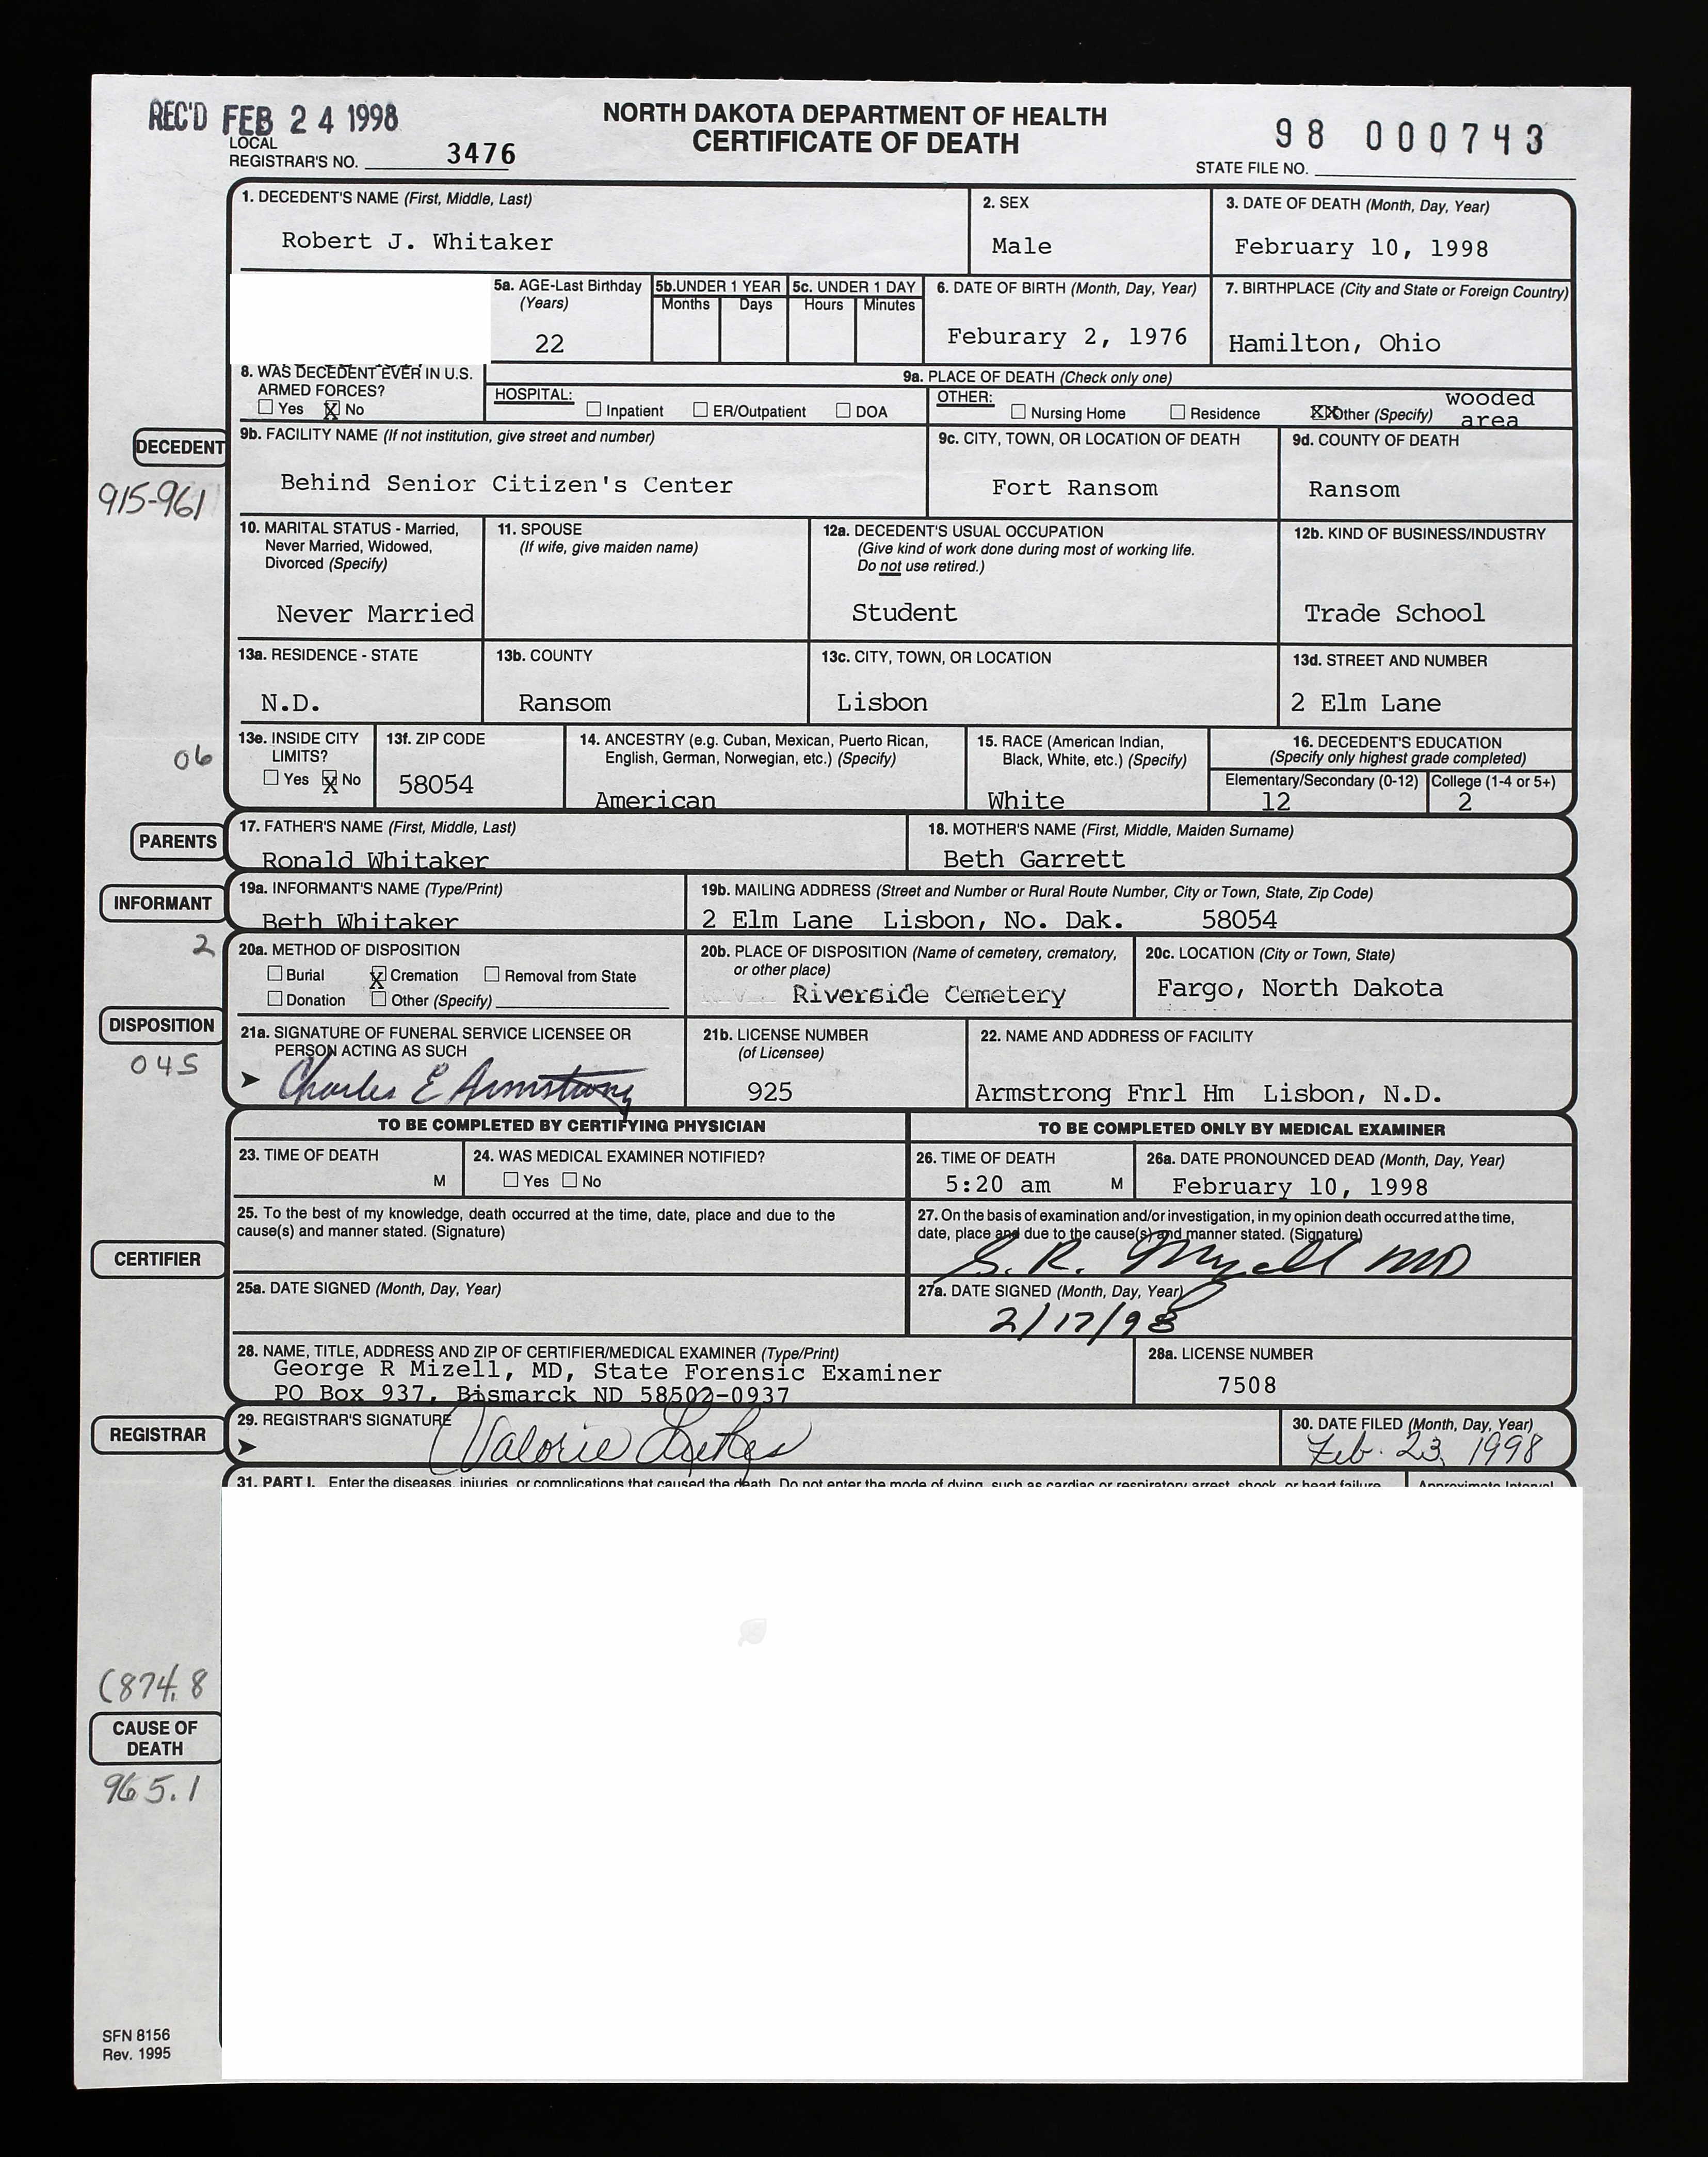 REC'D FEB 24 1998
NORTH DAKOTA DEPARTMENT OF HEALTH
CERTIFICATE OF DEATH
98 000743
LOCAL
REGISTRAR'S NO. 3476
STATE FILE NO.
1. DECEDENT'S NAME (First, Middle, Last)
Robert J. Whitaker
2. SEX
Male
3. DATE OF DEATH (Month, Day, Year)
February 10, 1998
5a. AGE-Last Birthday
(Years)
22
5b. UNDER 1 YEAR
Months Days
5c. UNDER 1 DAY
Hours Minutes
6. DATE OF BIRTH (Month, Day, Year)
Feburary 2, 1976
7. BIRTHPLACE (City and State or Foreign Country)
Hamilton, Ohio
8. WAS DECEDENT EVER IN U.S.
ARMED FORCES?
Yes X No
9a. PLACE OF DEATH (Check only one)
HOSPITAL: Inpatient ER/Outpatient DOA
OTHER: Nursing Home Residence XX Other (Specify) wooded
area
DECEDENT
915-961
9b. FACILITY NAME (If not institution, give street and number)
Behind Senior Citizen's Center
9c. CITY, TOWN, OR LOCATION OF DEATH
Fort Ransom
9d. COUNTY OF DEATH
Ransom
10. MARITAL STATUS - Married,
Never Married, Widowed,
Divorced (Specify)
Never Married
11. SPOUSE
(If wife, give maiden name)
12a. DECEDENT'S USUAL OCCUPATION
(Give kind of work done during most of working life.
Do not use retired.)
Student
12b. KIND OF BUSINESS/INDUSTRY
Trade School
13a. RESIDENCE - STATE
N.D.
13b. COUNTY
Ransom
13c. CITY, TOWN, OR LOCATION
Lisbon
13d. STREET AND NUMBER
2 Elm Lane
06
13e. INSIDE CITY
LIMITS?
Yes X No
13f. ZIP CODE
58054
14. ANCESTRY (e.g. Cuban, Mexican, Puerto Rican,
English, German, Norwegian, etc.) (Specify)
American
15. RACE (American Indian,
Black, White, etc.) (Specify)
White
16. DECEDENT'S EDUCATION
(Specify only highest grade completed)
Elementary/Secondary (0-12) College (1-4 or 5+)
12 2
PARENTS
17. FATHER'S NAME (First, Middle, Last)
Ronald Whitaker
18. MOTHER'S NAME (First, Middle, Maiden Surname)
Beth Garrett
INFORMANT
19a. INFORMANT'S NAME (Type/Print)
Beth Whitaker
19b. MAILING ADDRESS (Street and Number or Rural Route Number, City or Town, State, Zip Code)
2 Elm Lane Lisbon, No. Dak. 58054
2
20a. METHOD OF DISPOSITION
Burial X Cremation Removal from State
Donation Other (Specify)
20b. PLACE OF DISPOSITION (Name of cemetery, crematory,
or other place)
Riverside Cemetery
20c. LOCATION (City or Town, State)
Fargo, North Dakota
DISPOSITION
045
21a. SIGNATURE OF FUNERAL SERVICE LICENSEE OR
PERSON ACTING AS SUCH
Charles E Armstrong
21b. LICENSE NUMBER
(of Licensee)
925
22. NAME AND ADDRESS OF FACILITY
Armstrong Fnrl Hm Lisbon, N.D.
TO BE COMPLETED BY CERTIFYING PHYSICIAN
TO BE COMPLETED ONLY BY MEDICAL EXAMINER
23. TIME OF DEATH
M
24. WAS MEDICAL EXAMINER NOTIFIED?
Yes No
26. TIME OF DEATH
5:20 am M
26a. DATE PRONOUNCED DEAD (Month, Day, Year)
February 10, 1998
25. To the best of my knowledge, death occurred at the time, date, place and due to the
cause(s) and manner stated. (Signature)
27. On the basis of examination and/or investigation, in my opinion death occurred at the time,
date, place and due to the cause(s) and manner stated. (Signature)
G. R. Mizell MD
CERTIFIER
25a. DATE SIGNED (Month, Day, Year)
27a. DATE SIGNED (Month, Day, Year)
2/17/98
28. NAME, TITLE, ADDRESS AND ZIP OF CERTIFIER/MEDICAL EXAMINER (Type/Print)
George R Mizell, MD, State Forensic Examiner
PO Box 937, Bismarck ND 58502-0937
28a. LICENSE NUMBER
7508
REGISTRAR
29. REGISTRAR'S SIGNATURE
Valorie
30. DATE FILED (Month, Day, Year)
Feb. 23, 1998
31. PART I. Enter the diseases, injuries, or complications that caused the death. Do not enter the mode of dying, such as cardiac or respiratory arrest, shock, or heart failure. Approximate Interval
(874.8
CAUSE OF
DEATH
965.1
SFN 8156
Rev. 1995